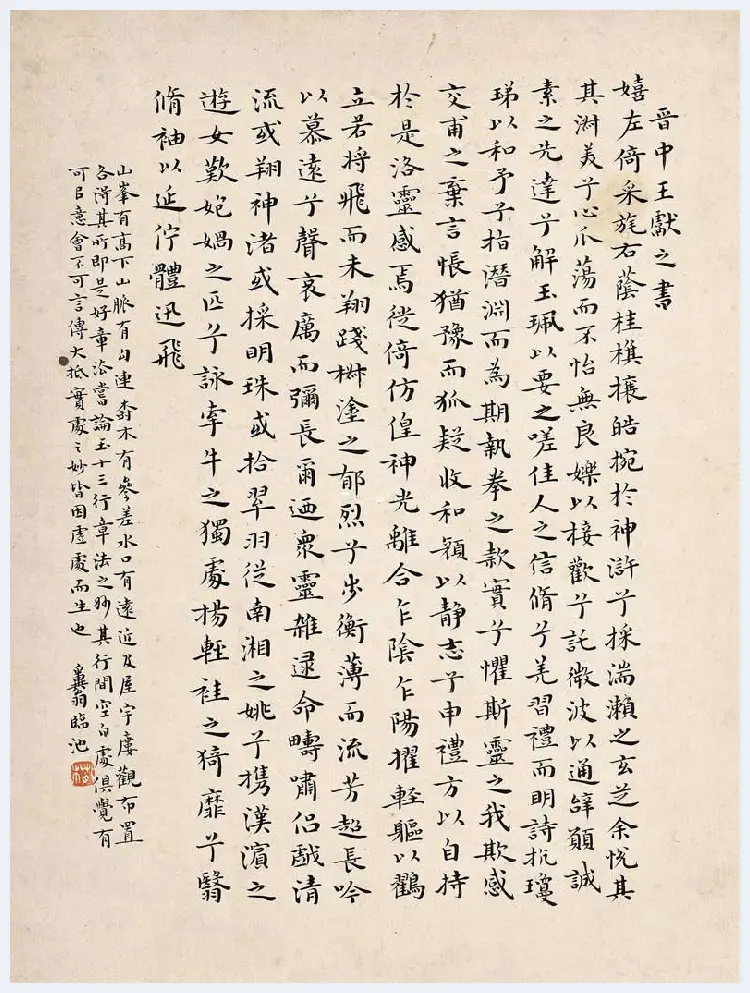 晉中王獻之書
嬉左倚采旄右蔭桂旗攘皓捥於神滸兮採湍瀨之玄芝余悅其
其淑美兮心爪蕩而不怡無良媒以接歡兮託微波以通辭願誠
素之先達兮解玉珮以要之嗟佳人之信脩兮羌習禮而明詩抗瓊
珶以和予兮指潛淵而為期執拳之款實兮懼斯靈之我欺感
交甫之棄言悵猶豫而狐疑收和顏以静志兮申禮方以自持
於是洛靈感焉徙倚仿偟神光離合乍陰乍陽擢輕軀以鶴
立若將飛而未翔踐椒塗之郁烈兮步衡薄而流芳超長吟
以慕遠兮聲哀厲而彌長爾迺衆靈雜遝命疇嘯侶戲清
流或翔神渚或採明珠或拾翠羽従南湘之姚兮携漢濱之
遊女歎㚿媧之匹兮詠牽牛之獨處揚輕袿之猗靡兮翳
脩袖以延佇體迅飛
山峯有高下山脈有勾連樹木有參差水口有遠近及屋宇廔觀布置
各得其所即是好章法嘗論玉十三行章法之妙其行間空白處俱覺有
可㠯意會不可言傳大抵實處之妙皆因虛處而生也 翁臨池